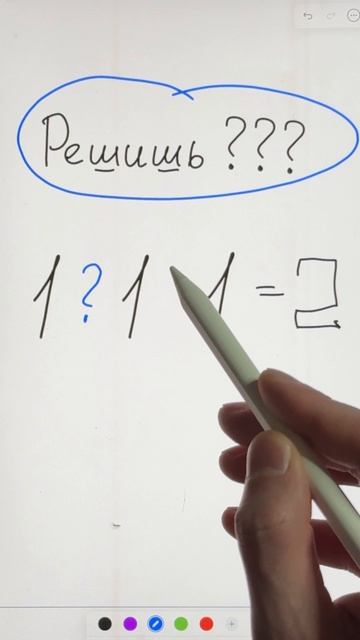 Решишь ???
1 ? 1 1 = 2